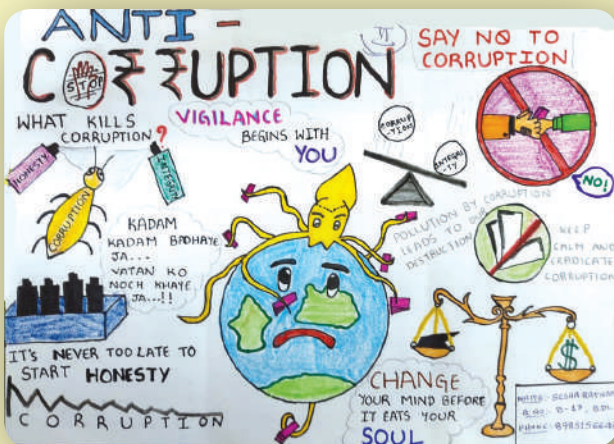 ANTI -
CO₹₹UPTION
STOP
VI
SAY NO TO
CORRUPTION
NO!
WHAT KILLS
CORRUPTION?
HONESTY
CORRUPTION
VIGILANCE
BEGINS WITH
YOU
CORRUP
-TION
INTEGRI-
TY
POLLUTION BY CORRUPTION
LEADS TO OUR
DESTRUCTION
KEEP
CALM AND
ERADICATE
CORRUPTION
KADAM
KADAM BADHAYE
JA...
VATAN KO
NOCH KHAYE
JA...!!
IT'S NEVER TOO LATE TO
START HONESTY
CORRUPTION
CHANGE
YOUR MIND BEFORE
IT EATS YOUR
SOUL
$
NAME:
PHONE: